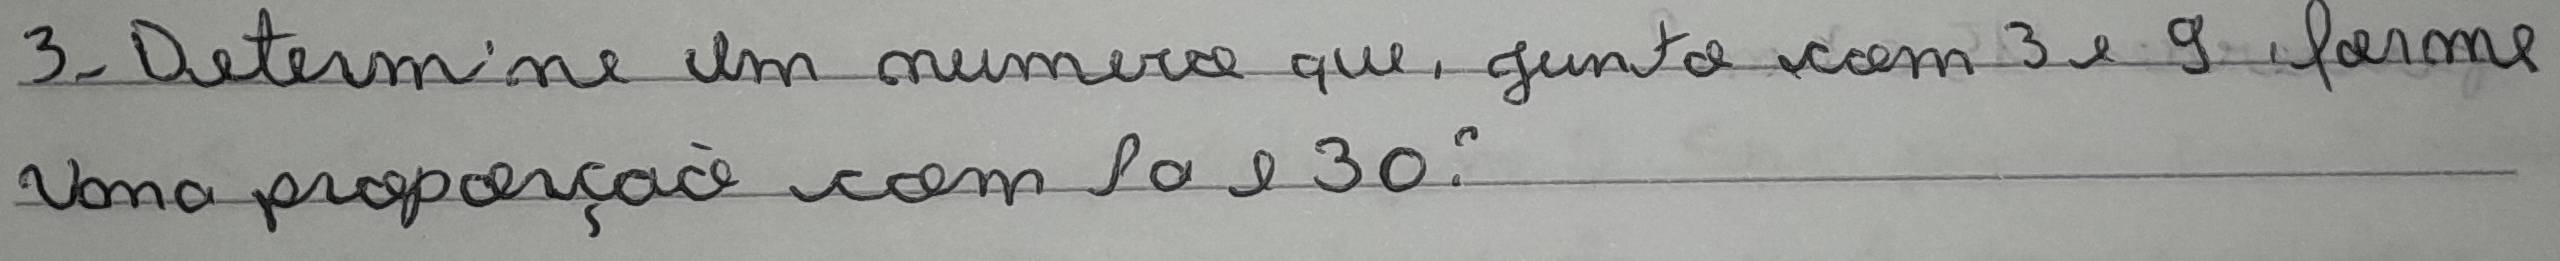 3- Determine um numero que, junto com 3 e 9, forme
Uma proporçaò com 10 e 30?